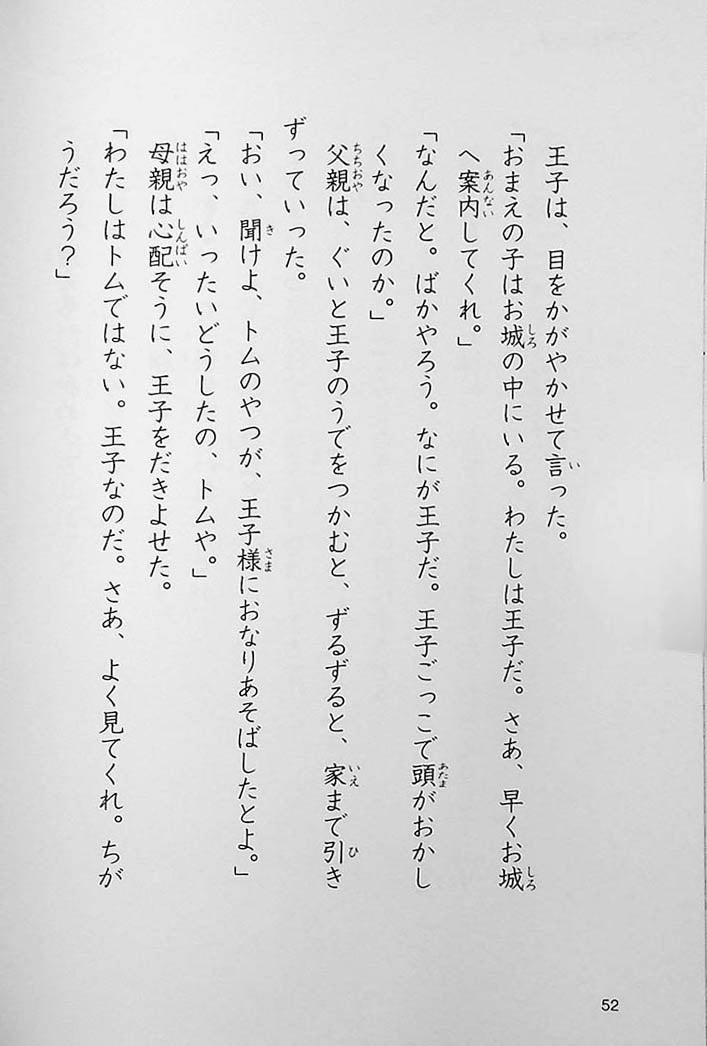 王子は、目をかがやかせて言った。
「おまえの子はお城の中にいる。わたしは王子だ。さあ、早くお城
へ案内してくれ。」
「なんだと。ばかやろう。なにが王子だ。王子ごっこで頭がおかし
くなったのか。」
父親は、ぐいと王子のうでをつかむと、ずるずると、家まで引き
ずっていった。
「おい、聞けよ、トムのやつが、王子様におなりあそばしたとよ。」
「えっ、いったいどうしたの、トムや。」
母親は心配そうに、王子をだきよせた。
「わたしはトムではない。王子なのだ。さあ、よく見てくれ。ちが
うだろう？」
52